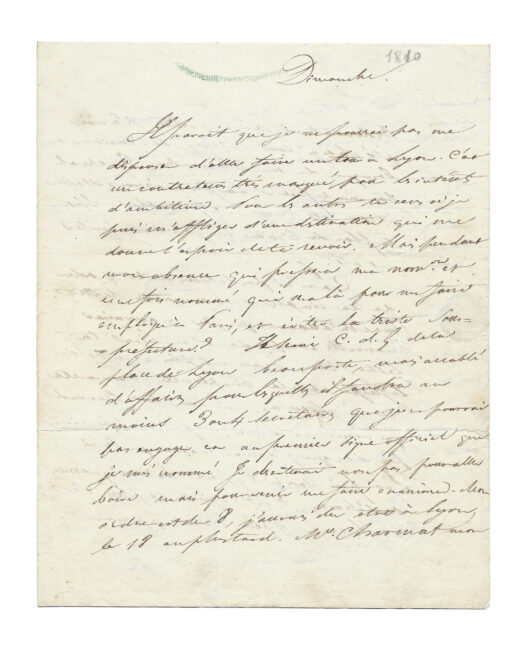 1810
Dimanche.
Il paroit que je ne pourrai pas me
dispenser d'aller faire un tour à Lyon. C'est
un contretems très marqué pour les intérêts
d'ambition. Sous les autres tu sens si je
puis m'affliger d'une destination qui me
donne l'espoir de te revoir. Mais pendant
mon absence qui pressera ma nom.on et
une fois nommé qui m'aidera pour me faire
employer à Paris, et éviter la triste Sous-
préfecture ? C. d. G. de la
place de Lyon beau poste, mais accablé
d'affaires pour lesquelles il faudra au
moins 3 outs secrétaires que je ne pourrai
pas engager car au premier signe officiel que
je suis nommé je non pas pour aller
boire mais pour venir me faire examiner. Mon
ordre est de 8, j'aurais du être à Lyon
le 18 au plus tard. Mr. mon